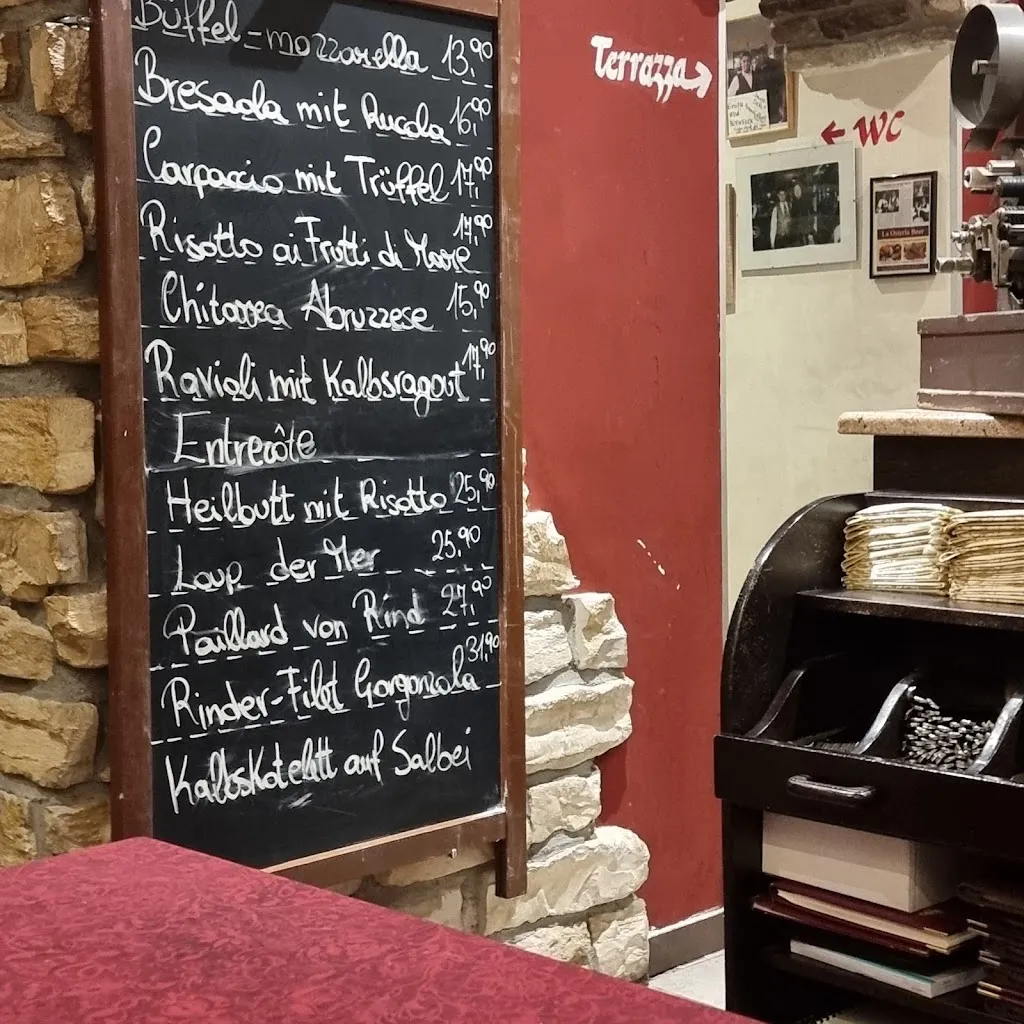 Büffel-mozzarella 13,90
Bresaola mit Rucola 16,90
Carpaccio mit Trüffel 17,90
Risotto ai Frutti di Mare 17,90
Chitarra Abruzzese 15,90
Ravioli mit Kalbsragout 17,90
Entrecôte
Heilbutt mit Risotto 25,90
Loup der Mer 25,90
Paillard von Rind 27,90
Rinder-Filet Gorgonzola 31,90
KalbsKotelett auf Salbei
Terrazza→
← WC
La Osteria Beer